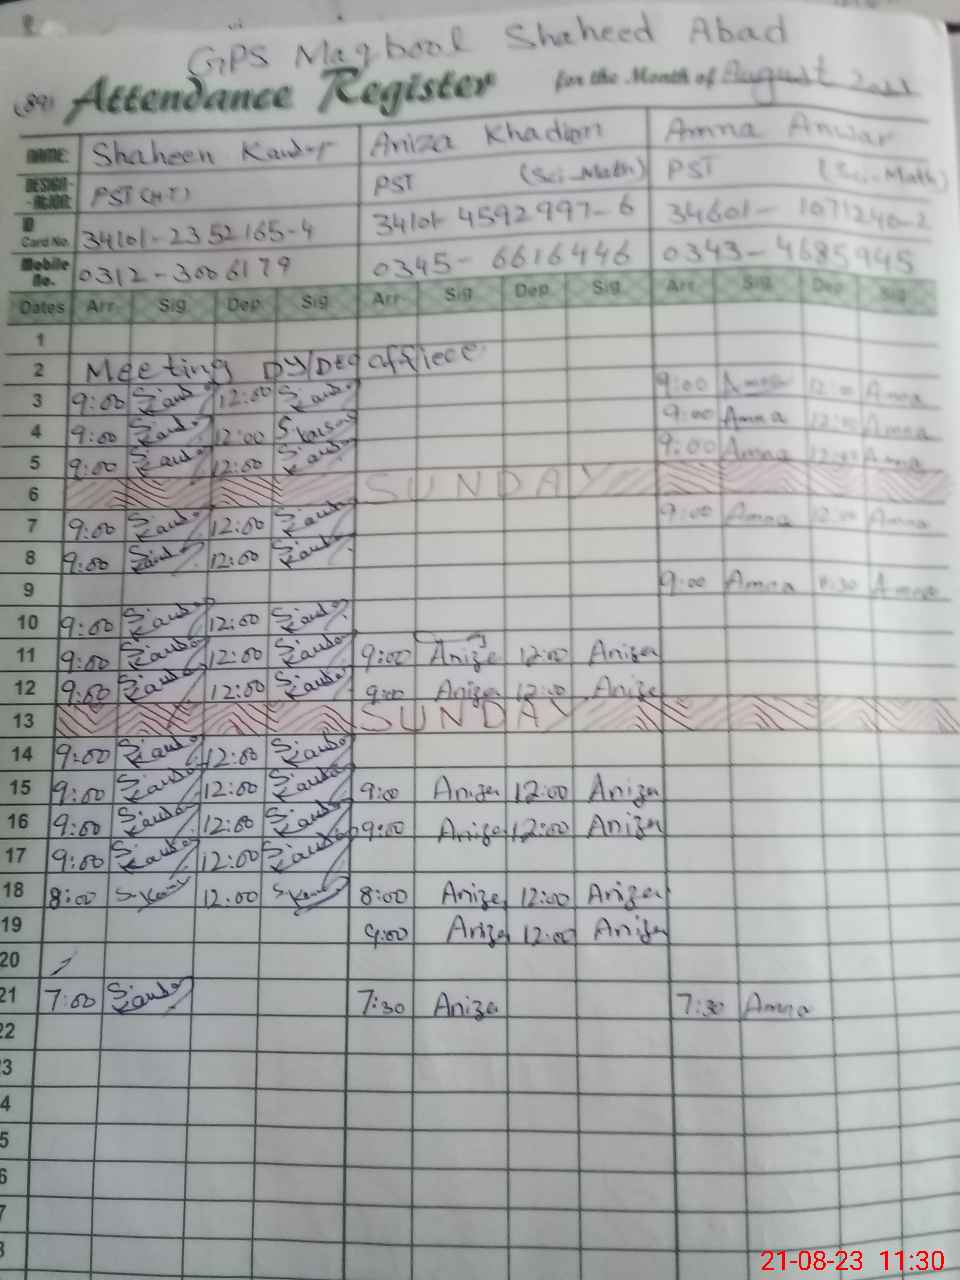 GPS Maqbool Shaheed Abad
(89) Attendance Register for the Month of August
NAME: Shaheen Kausar Aniza Khadim Amna Anwar
DESIGN-ATION: PST (H.T) PST (Sci-Math) PST (Sci-Math)
ID Card No. 34101-2352165-4 34101 4592997-6 34601- 1071240-2
Mobile No. 0312-3006179 0345- 6616446 0343-4685945
Dates Arr. Sig Dep Sig Arr. Sig Dep Sig Arr. Sig Dep Sig
1
2 Meeting Dy/Deo offiece
3 9:00 S.Kausar 12:00 S.Kausar 9:00 Amna 12:00 Amna
4 9:00 S.Kausar 12:00 S.Kausar 9:00 Amna 12:00 Amna
5 9:00 S.Kausar 12:00 S.Kausar 9:00 Amna 12:00 Amna
6 SUNDAY
7 9:00 S.Kausar 12:00 S.Kausar 9:00 Amna 12:00 Amna
8 9:00 S.Kausar 12:00 S.Kausar
9 9:00 Amna 11:30 Amna
10 9:00 S.Kausar 12:00 S.Kausar
11 9:00 S.Kausar 12:00 S.Kausar 9:00 Aniza 12:00 Aniza
12 9:00 S.Kausar 12:00 S.Kausar 9:00 Aniza 12:00 Aniza
13 SUNDAY
14 9:00 S.Kausar 12:00 S.Kausar
15 9:00 S.Kausar 12:00 S.Kausar 9:00 Aniza 12:00 Aniza
16 9:00 S.Kausar 12:00 S.Kausar 9:00 Aniza 12:00 Aniza
17 9:00 S.Kausar 12:00 S.Kausar
18 8:00 S.Kausar 12:00 S.Kausar 8:00 Aniza 12:00 Aniza
19 9:00 Aniza 12:00 Aniza
20
21 7:00 S.Kausar 7:30 Aniza 7:30 Amna
22
3
4
5
6
7
8
21-08-23 11:30